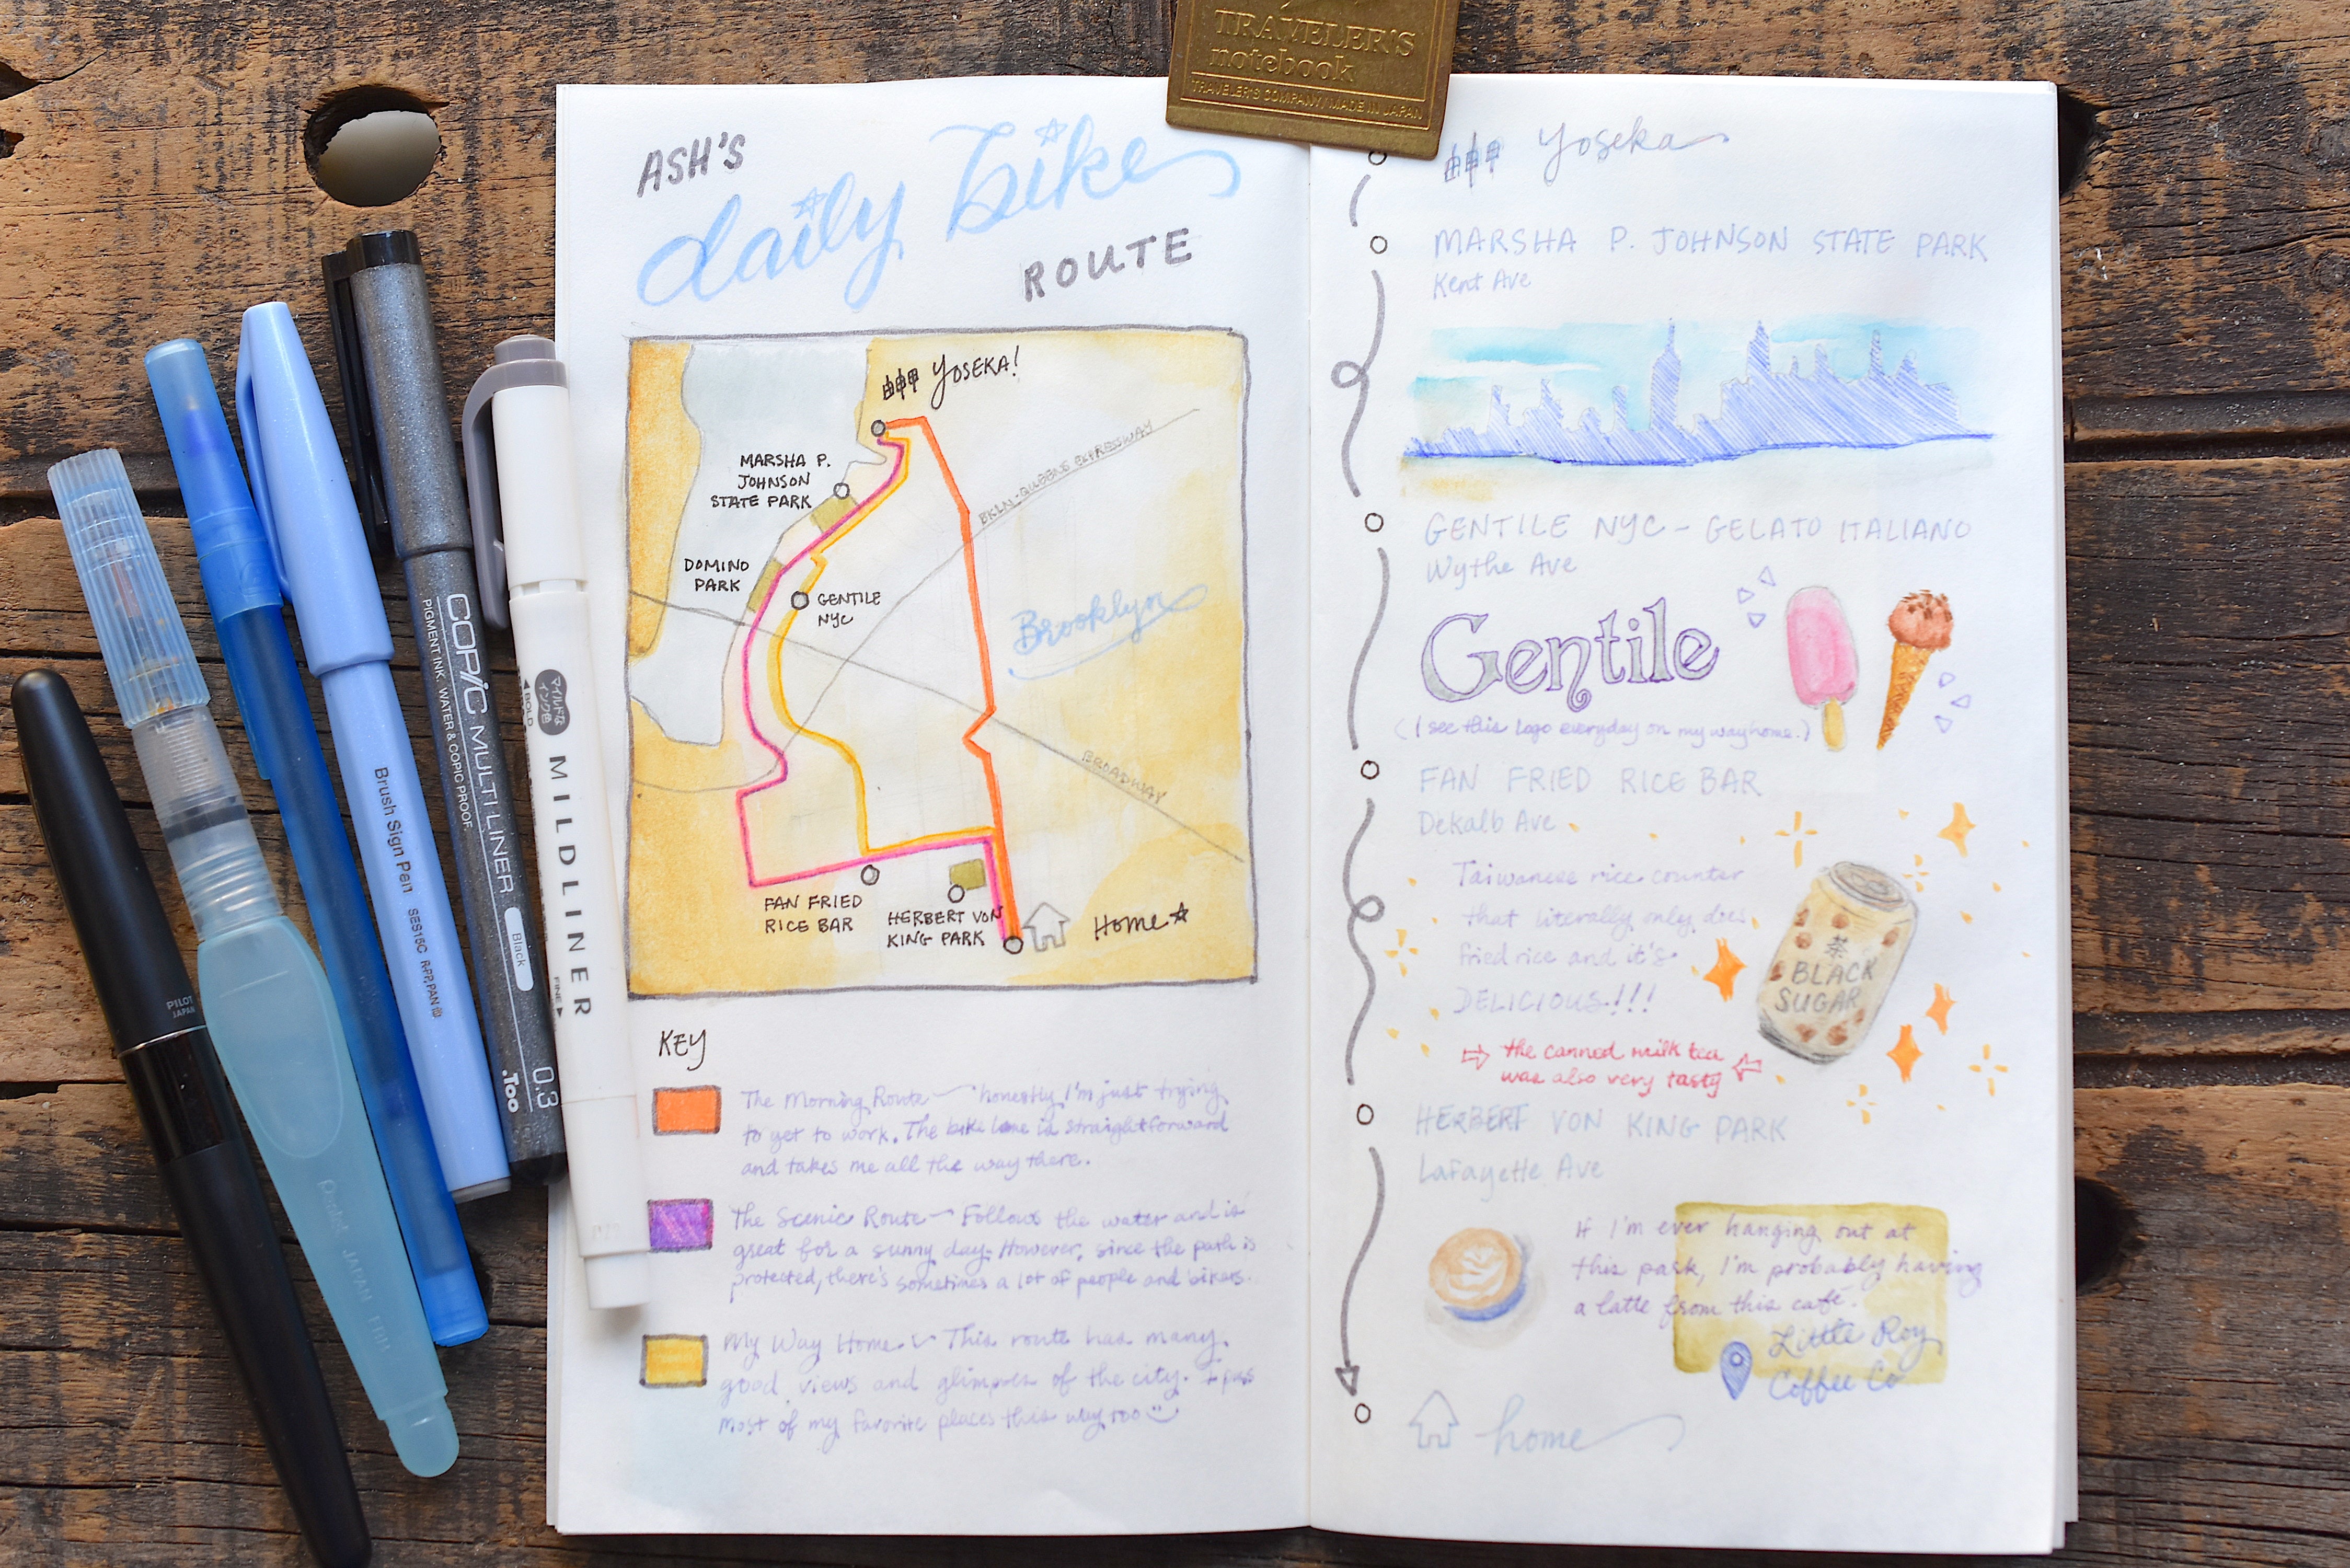 TRAVELER'S
notebook
TRAVELER'S COMPANY/MADE IN JAPAN
ASH'S
daily bike
ROUTE
YOSEKA!
MARSHA P.
JOHNSON
STATE PARK
DOMINO
PARK
GENTILE
NYC
BKLN-QUEENS EXPRESSWAY
Brooklyn
BROADWAY
FAN FRIED
RICE BAR
HERBERT VON
KING PARK
Home
KEY
The Morning Route — honestly I'm just trying
to get to work. The bike lane is straightforward
and takes me all the way there.
The Scenic Route — Follows the water and is
great for a sunny day. However, since the path is
protected, there's sometimes a lot of people and bikers.
My Way Home — This route has many
good views and glimpses of the city. I pass
most of my favorite places this way too
Yoseka
MARSHA P. JOHNSON STATE PARK
Kent Ave
GENTILE NYC - GELATO ITALIANO
Wythe Ave
Gentile
(I see this logo everyday on my way home.)
FAN FRIED RICE BAR
Dekalb Ave
Taiwanese rice counter
that literally only does
fried rice and it's
DELICIOUS!!!
茶
BLACK
SUGAR
the canned milk tea
was also very tasty
HERBERT VON KING PARK
Lafayette Ave
If I'm ever hanging out at
this park, I'm probably having
a latte from this café.
Little Roy
Coffee Co
home
PILOT
JAPAN
Pentel JAPAN
Brush Sign Pen SES15C
COPIC MULTI LINER
PIGMENT INK. WATER & COPIC PROOF.
Black
0.3
.Too
マイルドな
インク色
BOLD
MILDLINER
FINE